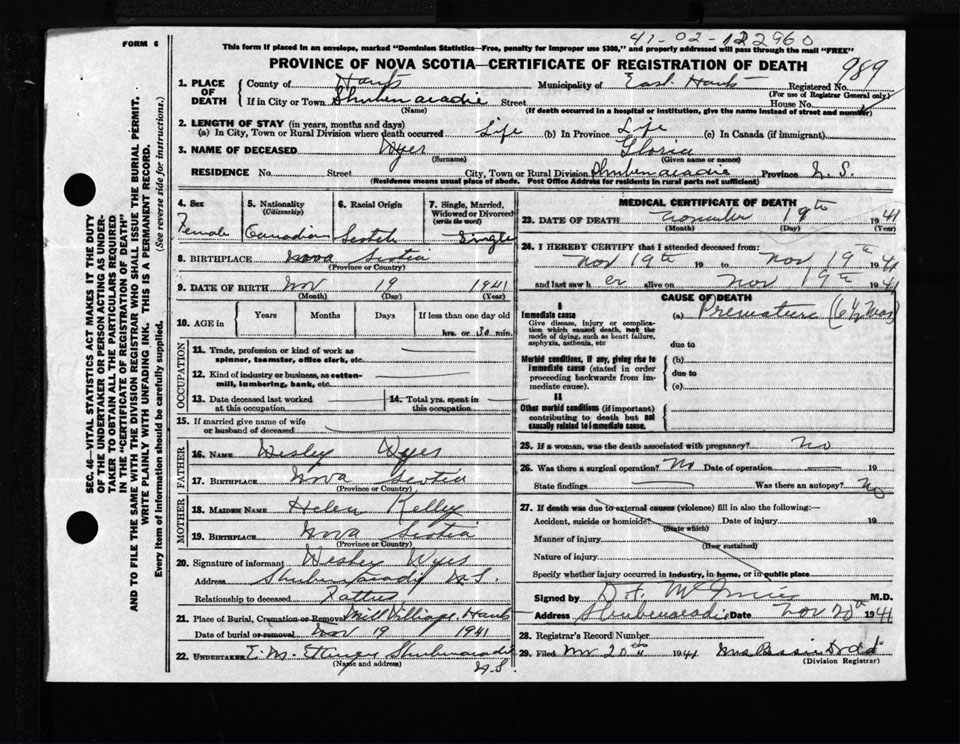 41-02-122960
FORM 6
This form if placed in an envelope, marked "Dominion Statistics—Free, penalty for improper use $300," and properly addressed will pass through the mail "FREE"
PROVINCE OF NOVA SCOTIA—CERTIFICATE OF REGISTRATION OF DEATH
989
1. PLACE OF DEATH County of Hants Municipality of East Hants Registered No.
(For use of Registrar General only)
If in City or Town Shubenacadie Street House No.
(Name) (If death occurred in a hospital or institution, give the name instead of street and number)
2. LENGTH OF STAY (in years, months and days)
(a) In City, Town or Rural Division where death occurred Life (b) In Province Life (c) In Canada (if immigrant)
3. NAME OF DECEASED Wyes Gloria
(Surname) (Given name or names)
RESIDENCE No. Street City, Town or Rural Division Shubenacadie Province N. S.
(Residence means usual place of abode. Post Office Address for residents in rural parts not sufficient)
4. Sex 5. Nationality (Citizenship) 6. Racial Origin 7. Single, Married, Widowed or Divorced (write the word)
Female Canadian Scotch Single
8. BIRTHPLACE Nova Scotia
(Province or Country)
9. DATE OF BIRTH Nov 19 1941
(Month) (Day) (Year)
10. AGE in Years Months Days If less than one day old
hrs. or 30 min.
OCCUPATION
11. Trade, profession or kind of work as spinner, teamster, office clerk, etc.
12. Kind of industry or business, as cotton-mill, lumbering, bank, etc.
13. Date deceased last worked at this occupation 14. Total yrs. spent in this occupation
15. If married give name of wife or husband of deceased
FATHER
16. NAME Wesley Wyes
17. BIRTHPLACE Nova Scotia
(Province or Country)
MOTHER
18. MAIDEN NAME Helen Kelly
19. BIRTHPLACE Nova Scotia
(Province or Country)
20. Signature of informant Wesley Wyes
Address Shubenacady N.S.
Relationship to deceased Father
21. Place of Burial, Cremation or Removal Mill Village, Hants
Date of burial or removal Nov 19 1941
22. UNDERTAKER E. M. Ettinger Shubenacadie
(Name and address) N.S
MEDICAL CERTIFICATE OF DEATH
23. DATE OF DEATH November 19th 1941
(Month) (Day)
24. I HEREBY CERTIFY that I attended deceased from:
Nov 19th 19 to Nov 19th 1941
and last saw her alive on Nov 19th 1941
CAUSE OF DEATH
I
Immediate cause (a) Premature (6 1/2 mos)
Give disease, injury or complication which caused death, not the mode of dying, such as heart failure, asphyxia, asthenia, etc
due to
Morbid conditions, if any, giving rise to immediate cause (stated in order proceeding backwards from immediate cause). (b)
due to
(c)
II
Other morbid conditions (if important) contributing to death but not causally related to immediate cause.
25. If a woman, was the death associated with pregnancy? No
26. Was there a surgical operation? No Date of operation 19
State findings Was there an autopsy? No
27. If death was due to external causes (violence) fill in also the following:—
Accident, suicide or homicide? Date of injury 19
(State which)
Manner of injury
(How sustained)
Nature of injury
Specify whether injury occurred in industry, in home, or in public place
Signed by M.D.
Address Shubenacadie Date Nov 20th 1941
28. Registrar's Record Number
29. Filed Nov 20 1941
(Division Registrar)
SEC. 46—VITAL STATISTICS ACT MAKES IT THE DUTY
OF THE UNDERTAKER OR PERSON ACTING AS UNDER-
TAKER TO OBTAIN ALL THE PARTICULARS REQUIRED
IN THE "CERTIFICATE OF REGISTRATION OF DEATH"
AND TO FILE THE SAME WITH THE DIVISION REGISTRAR WHO SHALL ISSUE THE BURIAL PERMIT.
WRITE PLAINLY WITH UNFADING INK. THIS IS A PERMANENT RECORD.
Every item of information should be carefully supplied. (See reverse side for instructions.)